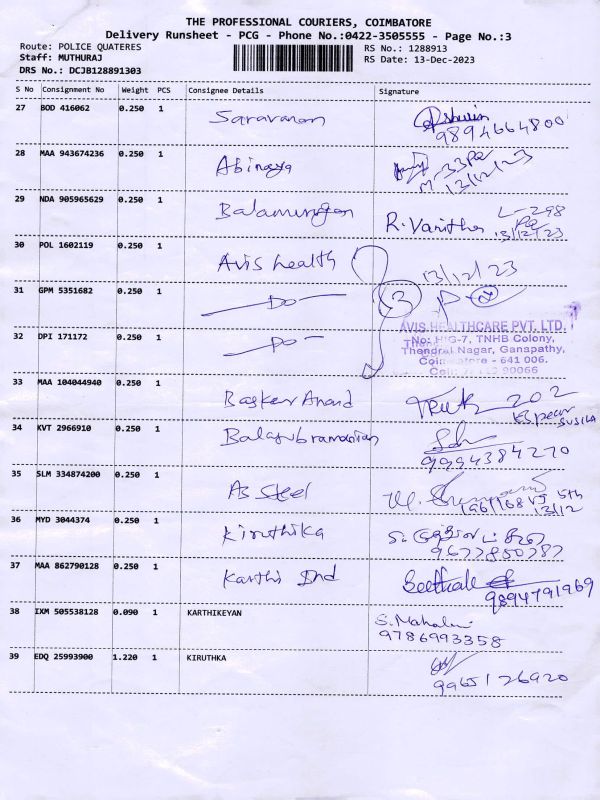 THE PROFESSIONAL COURIERS, COIMBATORE
Delivery Runsheet - PCG - Phone No.:0422-3505555 - Page No.:3
Route: POLICE QUATERES RS No.: 1288913
Staff: MUTHURAJ RS Date: 13-Dec-2023
DRS No.: DCJB128891303
S No Consignment No Weight PCS Consignee Details Signature
27 BOD 416062 0.250 1 Saravanan
9894664800
28 MAA 943674236 0.250 1 Abinaya
13/12/23
29 NDA 905965629 0.250 1 Balamurugan R. Vanitha L-298
13/12/23
30 POL 1602119 0.250 1 Avis health 13/12/23
31 GPM 5351682 0.250 1 - Do - 3
32 DPI 171172 0.250 1 - Do -
AVIS HEALTHCARE PVT. LTD.
No: HIG-7, TNHB Colony,
Thendral Nagar, Ganapathy,
Coimbatore - 641 006.
90066
33 MAA 104044940 0.250 1 Basker Anand 202
SUSILA
34 KVT 2966910 0.250 1 Balasubramanian
9994384270
35 SLM 334874200 0.250 1 AS Steel
13/12
36 MYD 3044374 0.250 1 Kiruthika
9677850787
37 MAA 862790128 0.250 1 Karthi Ind
9894791969
38 IXM 505538128 0.090 1 KARTHIKEYAN S. Mahalu
9786993358
39 EDQ 25993900 1.220 1 KIRUTHKA
9965126920